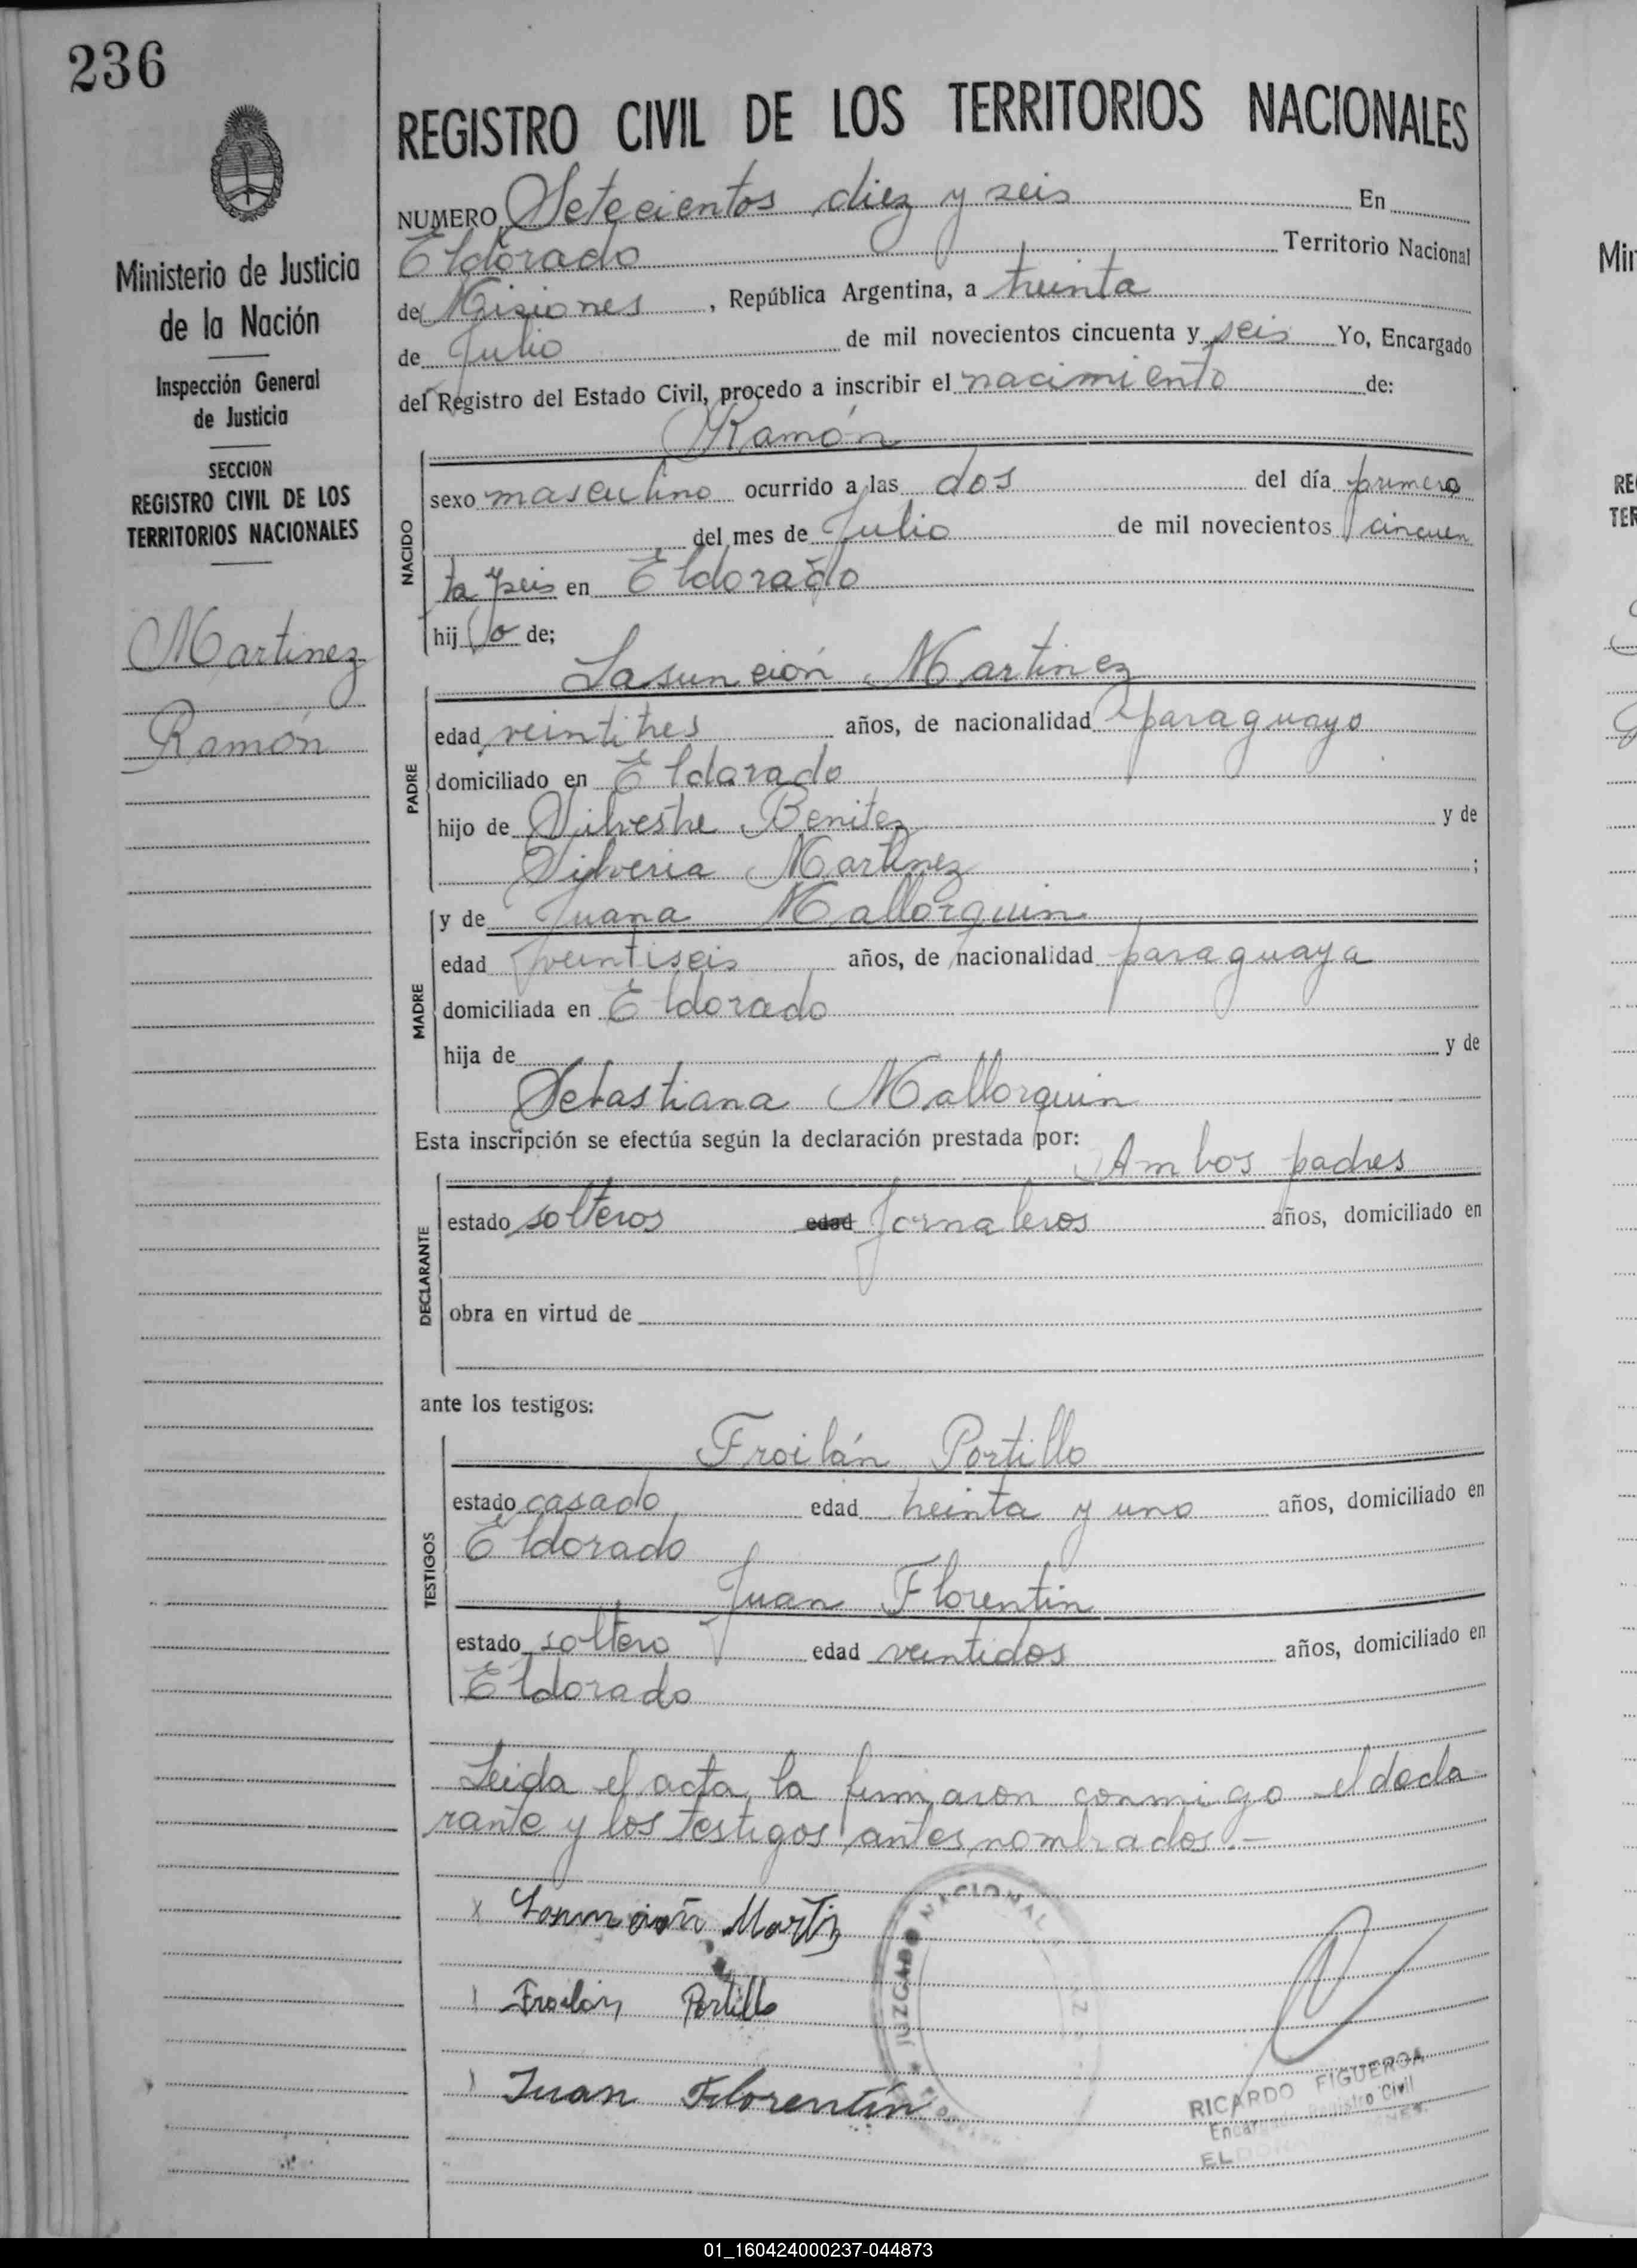 236
REGISTRO CIVIL DE LOS TERRITORIOS NACIONALES
Ministerio de Justicia
de la Nación
Inspección General
de Justicia
SECCION
REGISTRO CIVIL DE LOS
TERRITORIOS NACIONALES
Martinez
Ramón
NUMERO Setecientos diez y seis En
Eldorado Territorio Nacional
de Misiones, República Argentina, a treinta
de Julio de mil novecientos cincuenta y seis Yo, Encargado
del Registro del Estado Civil, procedo a inscribir el nacimiento de:
Ramón
NACIDO
sexo masculino ocurrido a las dos del día primero
del mes de Julio de mil novecientos cincuen
ta y seis en Eldorado
hij o de;
Lasunción Martinez
PADRE
edad veintitres años, de nacionalidad paraguayo
domiciliado en Eldorado
hijo de Silvestre Benitez y de
Silveria Martinez ;
MADRE
y de Juana Mallorquin
edad veintiseis años, de nacionalidad paraguaya
domiciliada en Eldorado
hija de y de
Sebastiana Mallorquin
Esta inscripción se efectúa según la declaración prestada por:
Ambos padres
DECLARANTE
estado solteros edad jornaleros años, domiciliado en
obra en virtud de
ante los testigos:
Froilán Portillo
TESTIGOS
estado casado edad treinta y uno años, domiciliado en
Eldorado
Juan Florentin
estado soltero edad veintidos años, domiciliado en
Eldorado
Leida el acta, la firmaron conmigo el decla
rante y los testigos antes nombrados.-
Martiz
Froilan Portillo
Juan Florentín
JUZGADO NACIONAL
RICARDO FIGUEROA
Encargado Registro Civil
ELDORADO
Min
RE
TER
01_160424000237-044873